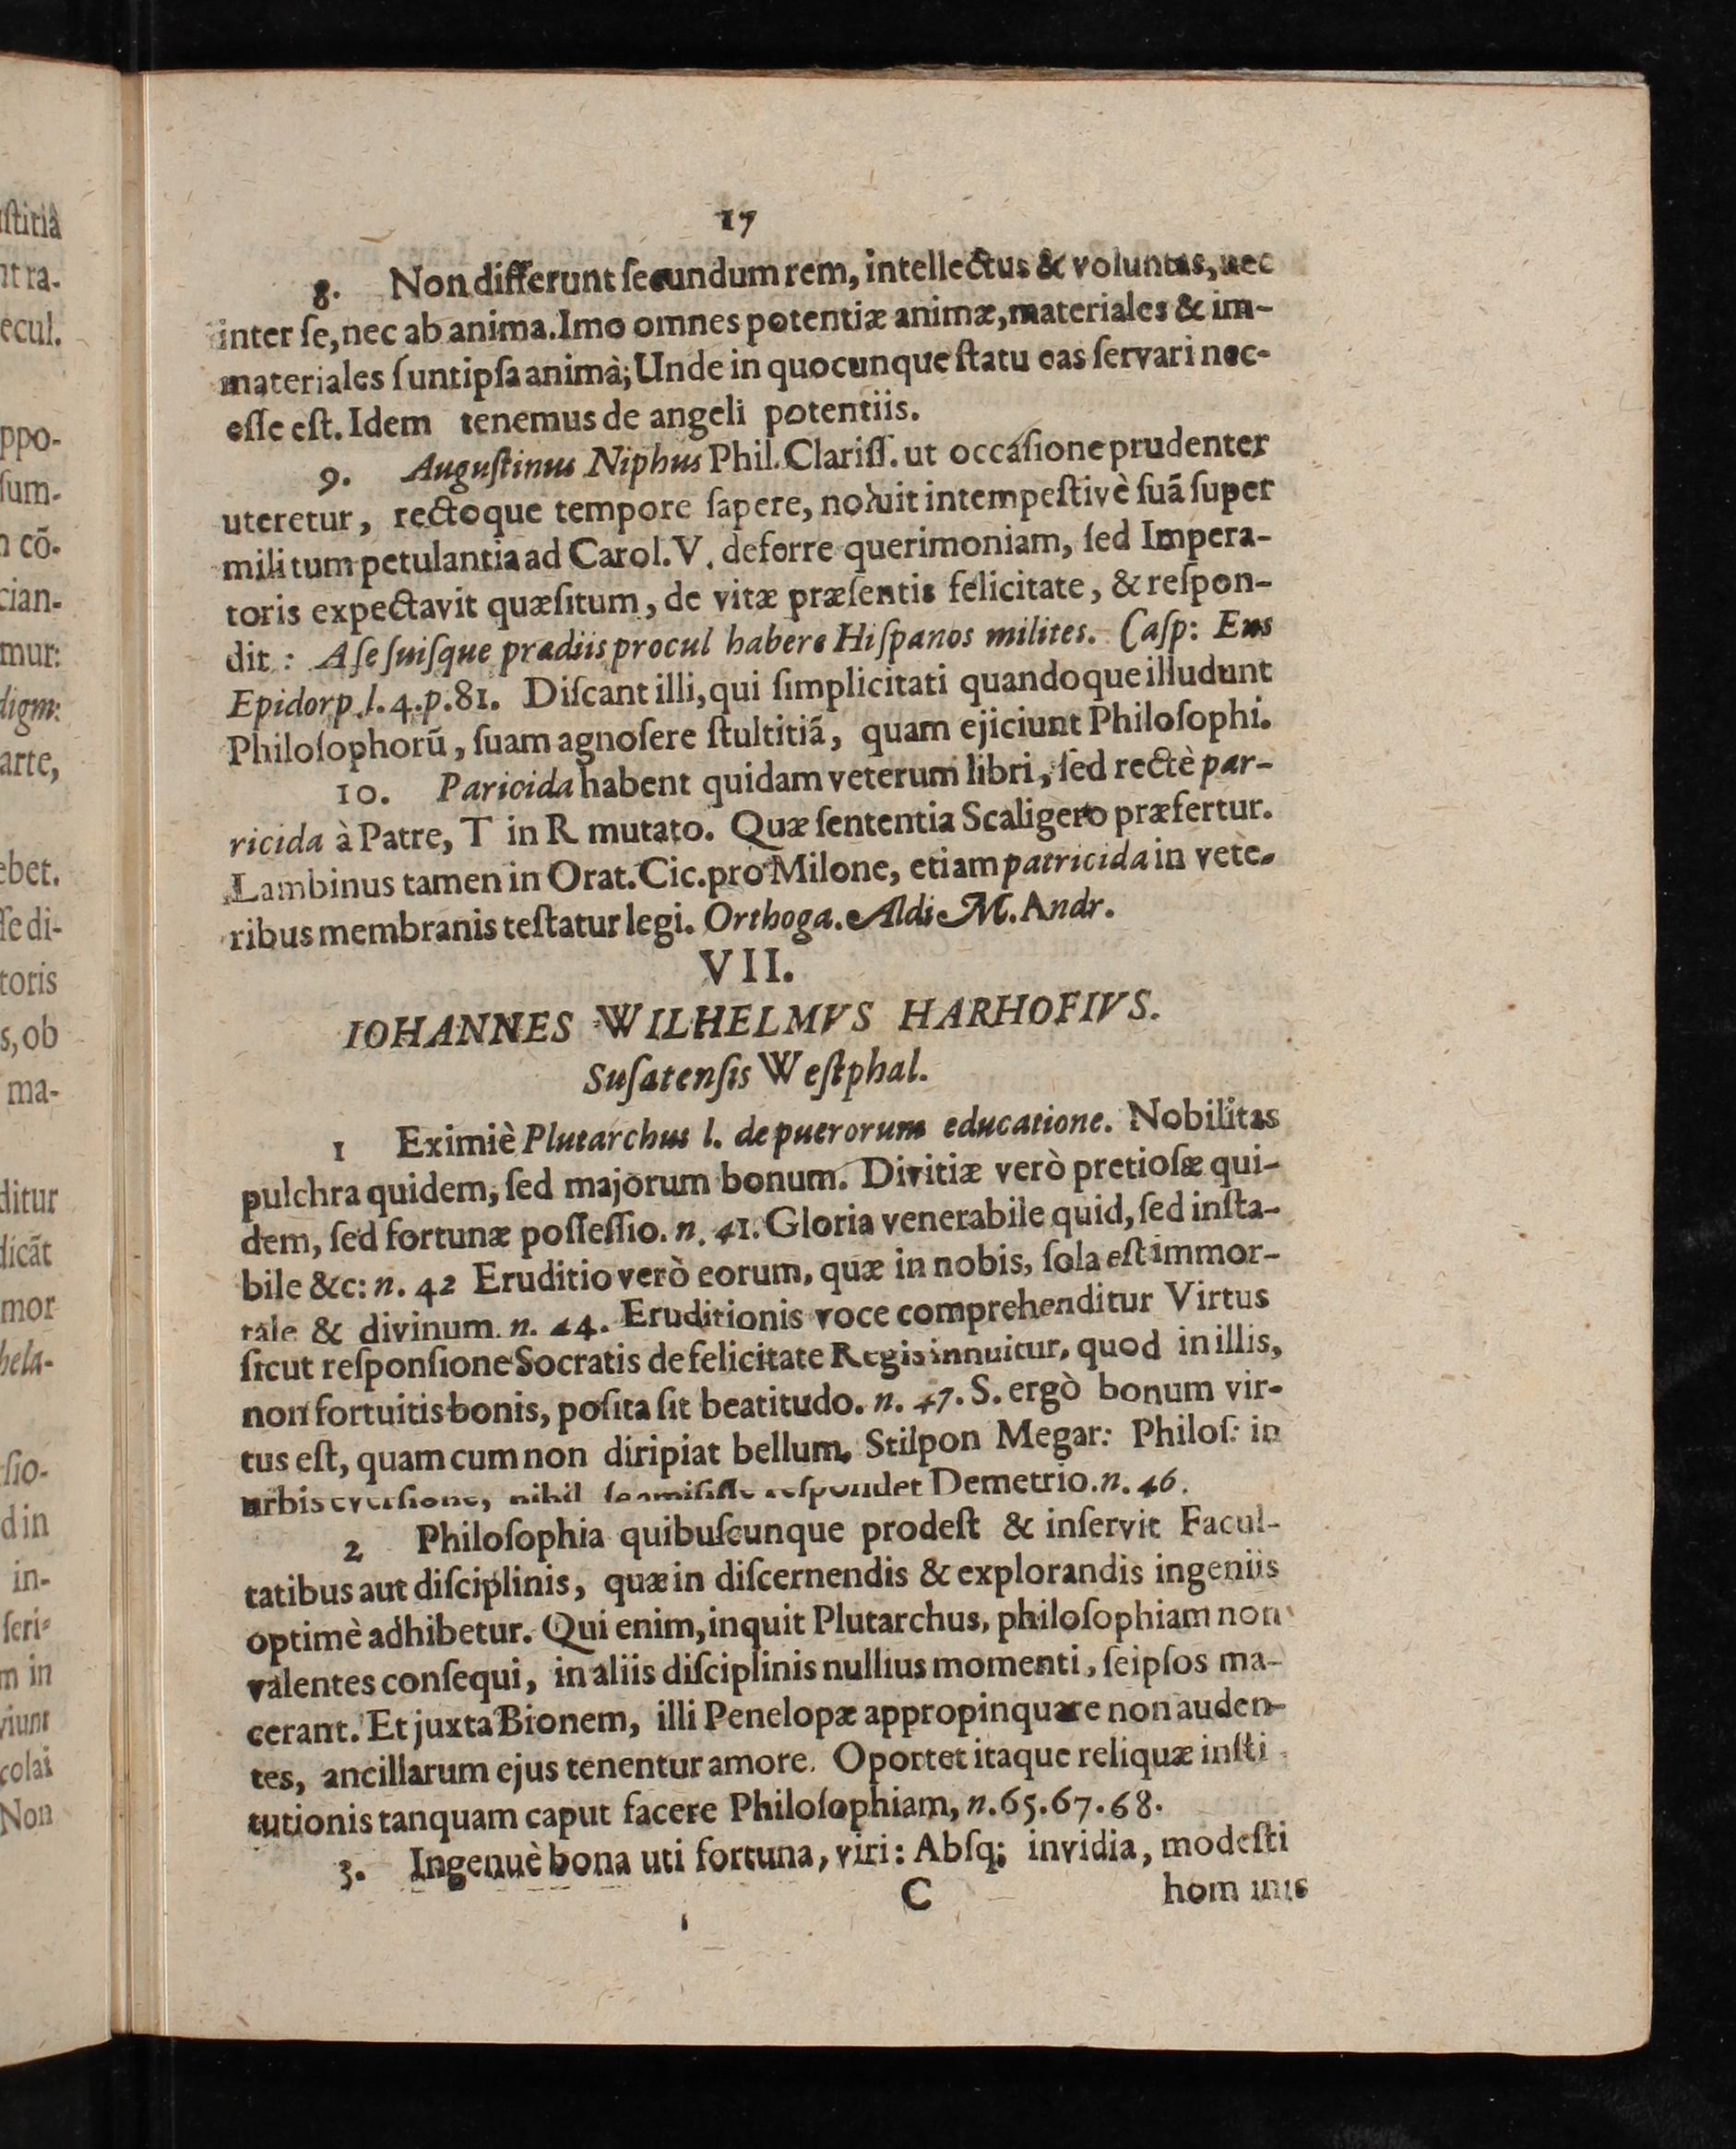 17
8. Non differunt ſecundum rem, intellectus & voluntas, nec
inter ſe, nec ab anima. Imo omnes potentiæ animæ, materiales & im-
materiales ſunt ipſa animà; Unde in quocunque ſtatu eas ſervari nec-
eſſe eſt. Idem tenemus de angeli potentiis.
9. Auguſtinus Niphus Phil. Clariſſ. ut occáſione prudenter
uteretur, rectoque tempore ſapere, noluit intempeſtivè ſuã ſuper
militum petulantia ad Carol. V. deferre querimoniam, ſed Impera-
toris expectavit quæſitum, de vitæ præſentis felicitate, & reſpon-
dit : A ſe ſuiſque prædiis procul habere Hiſpanos milites. Caſp: Ens
Epidorp. l. 4. p. 81. Diſcant illi, qui ſimplicitati quandoque illudunt
Philoſophorũ, ſuam agnoſere ſtultitiã, quam ejiciunt Philoſophi.
10. Paricida habent quidam veterum libri, ſed rectè par-
ricida à Patre, T in R mutato. Quæ ſententia Scaligero præfertur.
Lambinus tamen in Orat. Cic. pro Milone, etiam patricida in vete-
ribus membranis teſtatur legi. Orthoga. Aldi M. Andr.
VII.
IOHANNES WILHELMVS HARHOFIVS.
Suſatenſis Weſtphal.
1 Eximiè Plutarchus l. de puerorum educatione. Nobilitas
pulchra quidem, ſed majorum bonum. Divitiæ verò pretioſæ qui-
dem, ſed fortunæ poſſeſſio. n. 41. Gloria venerabile quid, ſed inſta-
bile &c: n. 42 Eruditio verò eorum, quæ in nobis, ſola eſt immor-
tale & divinum. n. 44. Eruditionis voce comprehenditur Virtus
ſicut reſponſione Socratis de felicitate Regis innuitur, quod in illis,
non fortuitis bonis, poſita ſit beatitudo. n. 47. S. ergò bonum vir-
tus eſt, quam cum non diripiat bellum, Stilpon Megar: Philoſ: in
urbis everſione, nihil ſe amiſiſſe reſpondet Demetrio. n. 46.
2 Philoſophia quibuſcunque prodeſt & inſervit Facul-
tatibus aut diſciplinis, quæ in diſcernendis & explorandis ingeniis
optimè adhibetur. Qui enim, inquit Plutarchus, philoſophiam non
valentes conſequi, in aliis diſciplinis nullius momenti, ſeipſos ma-
cerant. Et juxta Bionem, illi Penelopæ appropinquare non auden-
tes, ancillarum ejus tenentur amore. Oportet itaque reliquæ inſti
tutionis tanquam caput facere Philoſophiam, n. 65. 67. 68.
3. Ingenuè bona uti fortuna, viri: Abſq; invidia, modeſti
C hominis
ſtitiâ
nt ra-
ecul.
ppo-
ſum-
n cõ-
cian-
mur:
digm:
arte,
ebet.
ſe di-
toris
s, ob
ma-
ditur
dicãt
mor
hela-
ſio-
d in
in-
ſeri-
m in
viunt
colai
Non